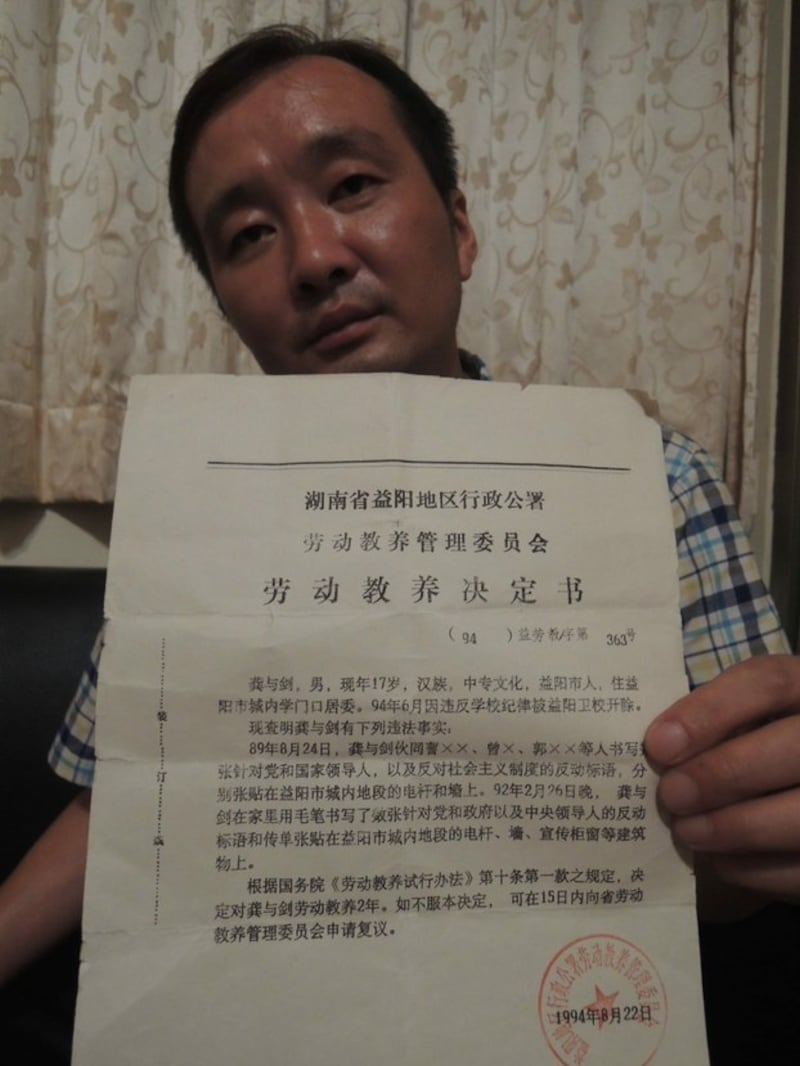 湖南省益阳地区行政公署
劳动教养管理委员会
劳动教养决定书
(94)益劳教字第363号
龚与剑，男，现年17岁，汉族，中专文化，益阳市人，住益
阳市城内学门口居委。94年6月因违反学校纪律被益阳卫校开除。
现查明龚与剑有下列违法事实：
89年8月24日，龚与剑伙同曹××、曾×、郭××等人书写
张针对党和国家领导人，以及反对社会主义制度的反动标语，分
别张贴在益阳市城内地段的电杆和墙上。92年2月26日晚，龚与
剑在家里用毛笔书写了数张针对党和政府以及中央领导人的反动
标语和传单张贴在益阳市城内地段的电杆、墙、宣传柜窗等建筑
物上。
根据国务院《劳动教养试行办法》第十条第一款之规定，决
定对龚与剑劳动教养2年。如不服本决定，可在15日内向省劳动
教养管理委员会申请复议。
装
订
线
行政公署劳动教养管理委员会
1994年8月22日